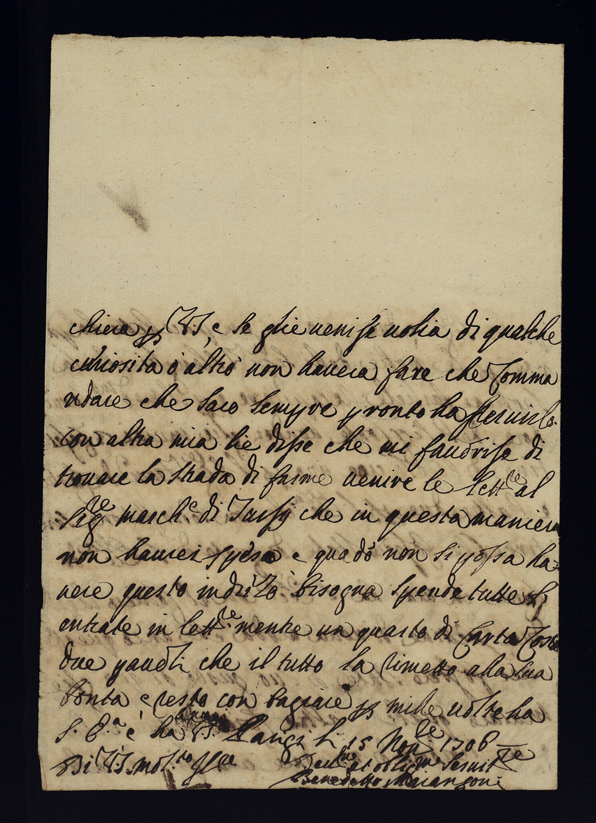 chiera p VS, e se glie venise volia di qualche
curiosita o altro non havera fare che Comma
ndare che saro sempre pronto ha servirlo
con altra mia lie disse che mi favorise di
trovare la strada di farme venire le lett.re al
Sig.re March.e di Tursÿ che in questa maniera
non haurei spesa e quado non si possa ha=
vere questo indrizo bisogna spende tutte
entrate in lett.re mentre un quarto di Carta Costa
due che il tutto la rimetto alla sua
bonta e resto con p mille volte ha
S. è ha VS Parigi li 15 Nov.re 1706
Di VS mol.to Ill.re
Benedetto Marangoni